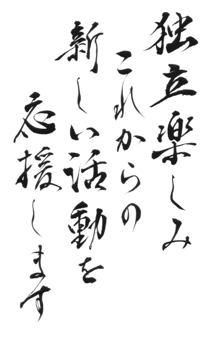 独立楽しみ
これからの
新しい活動を
応援します